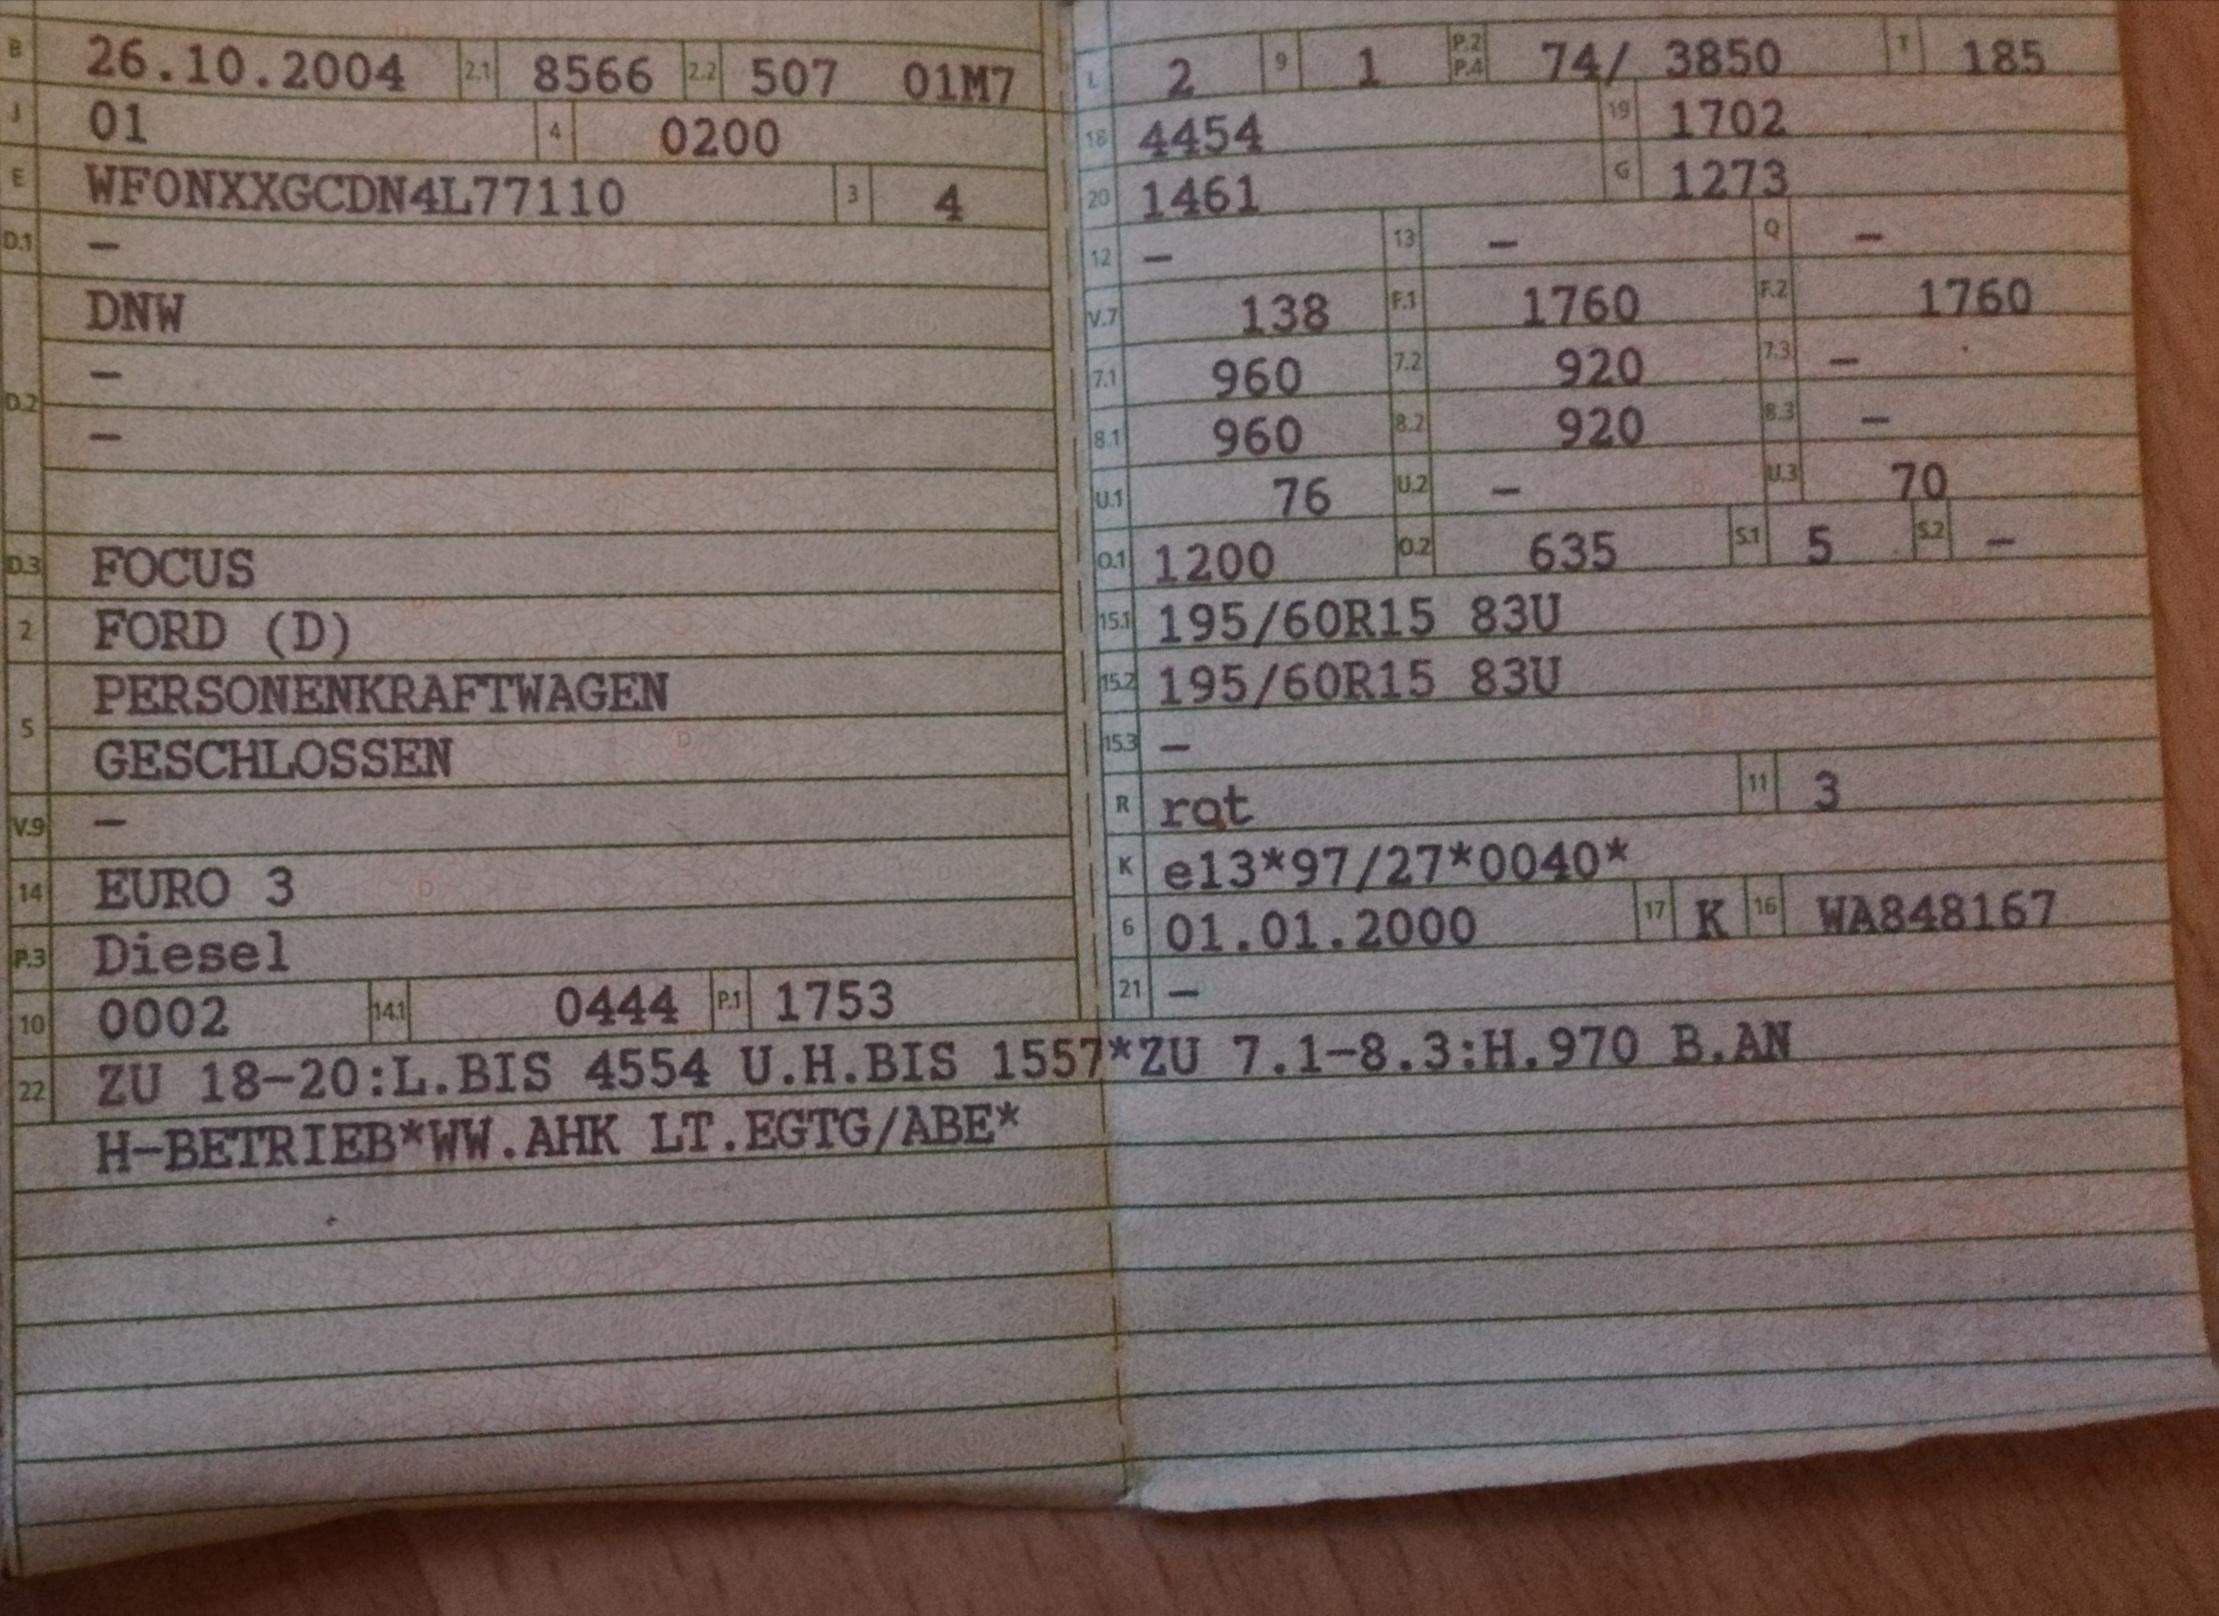 B 26.10.2004 2.1 8566 2.2 507 01M7
J 01 4 0200
E WF0NXXGCDN4L77110 3 4
D.1 –
D.2 DNW
–
–
D.3 FOCUS
2 FORD (D)
5 PERSONENKRAFTWAGEN
GESCHLOSSEN
V.9 –
14 EURO 3
P.3 Diesel
10 0002 14.1 0444 P.1 1753
L 2 9 1 P.2 P.4 74/ 3850 T 185
18 4454 19 1702
20 1461 G 1273
12 – 13 – Q –
V.7 138 F.1 1760 F.2 1760
7.1 960 7.2 920 7.3 –
8.1 960 8.2 920 8.3 –
U.1 76 U.2 – U.3 70
O.1 1200 O.2 635 S.1 5 S.2 –
15.1 195/60R15 83U
15.2 195/60R15 83U
15.3 –
R rot 11 3
K e13*97/27*0040*
6 01.01.2000 17 K 16 WA848167
21 –
22 ZU 18-20:L.BIS 4554 U.H.BIS 1557*ZU 7.1-8.3:H.970 B.AN
H-BETRIEB*WW.AHK LT.EGTG/ABE*